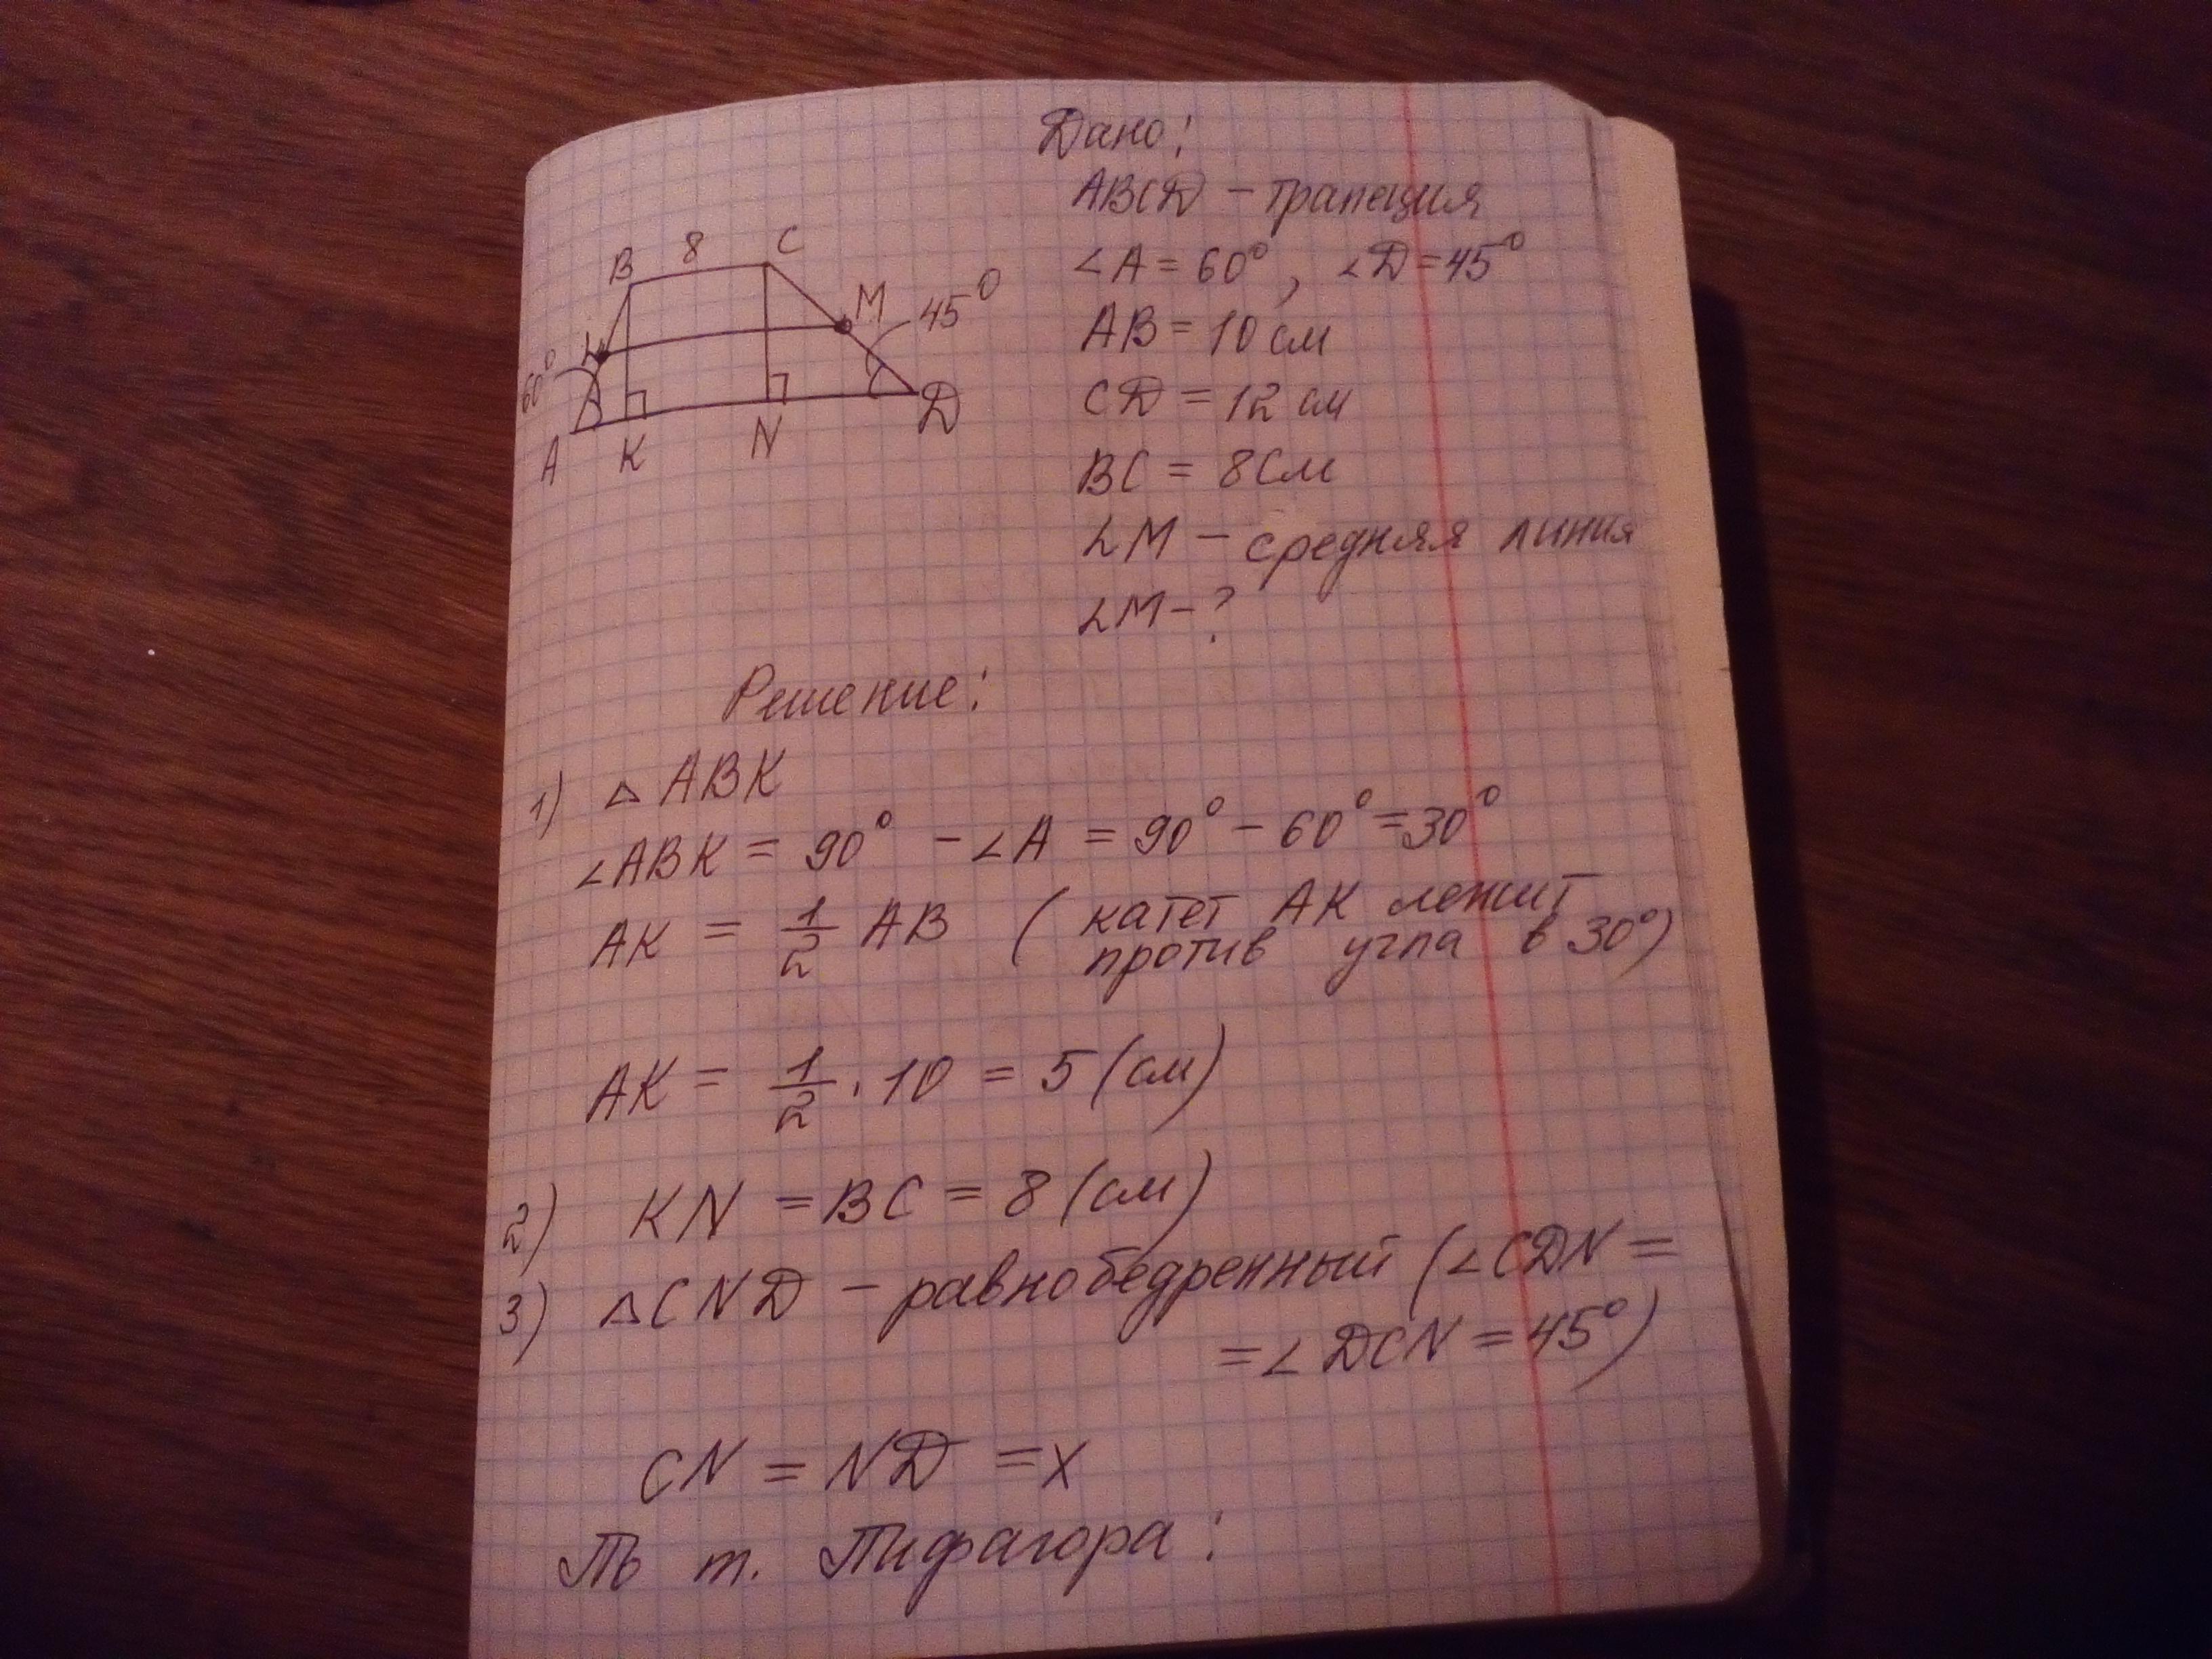 Дано:
ABCD - трапеция
∠A = 60°, ∠D = 45°
AB = 10 см
CD = 12 см
BC = 8 см
LM - средняя линия
LM - ?
B 8 C
L M 45°
60°
A K N D
Решение:
1) △ ABK
∠ABK = 90° - ∠A = 90° - 60° = 30°
AK = 1/2 AB ( катет AK лежит
против угла в 30°)
AK = 1/2 · 10 = 5 (см)
2) KN = BC = 8 (см)
3) △CND - равнобедренный (∠CDN =
= ∠DCN = 45°)
CN = ND = x
По т. Пифагора: